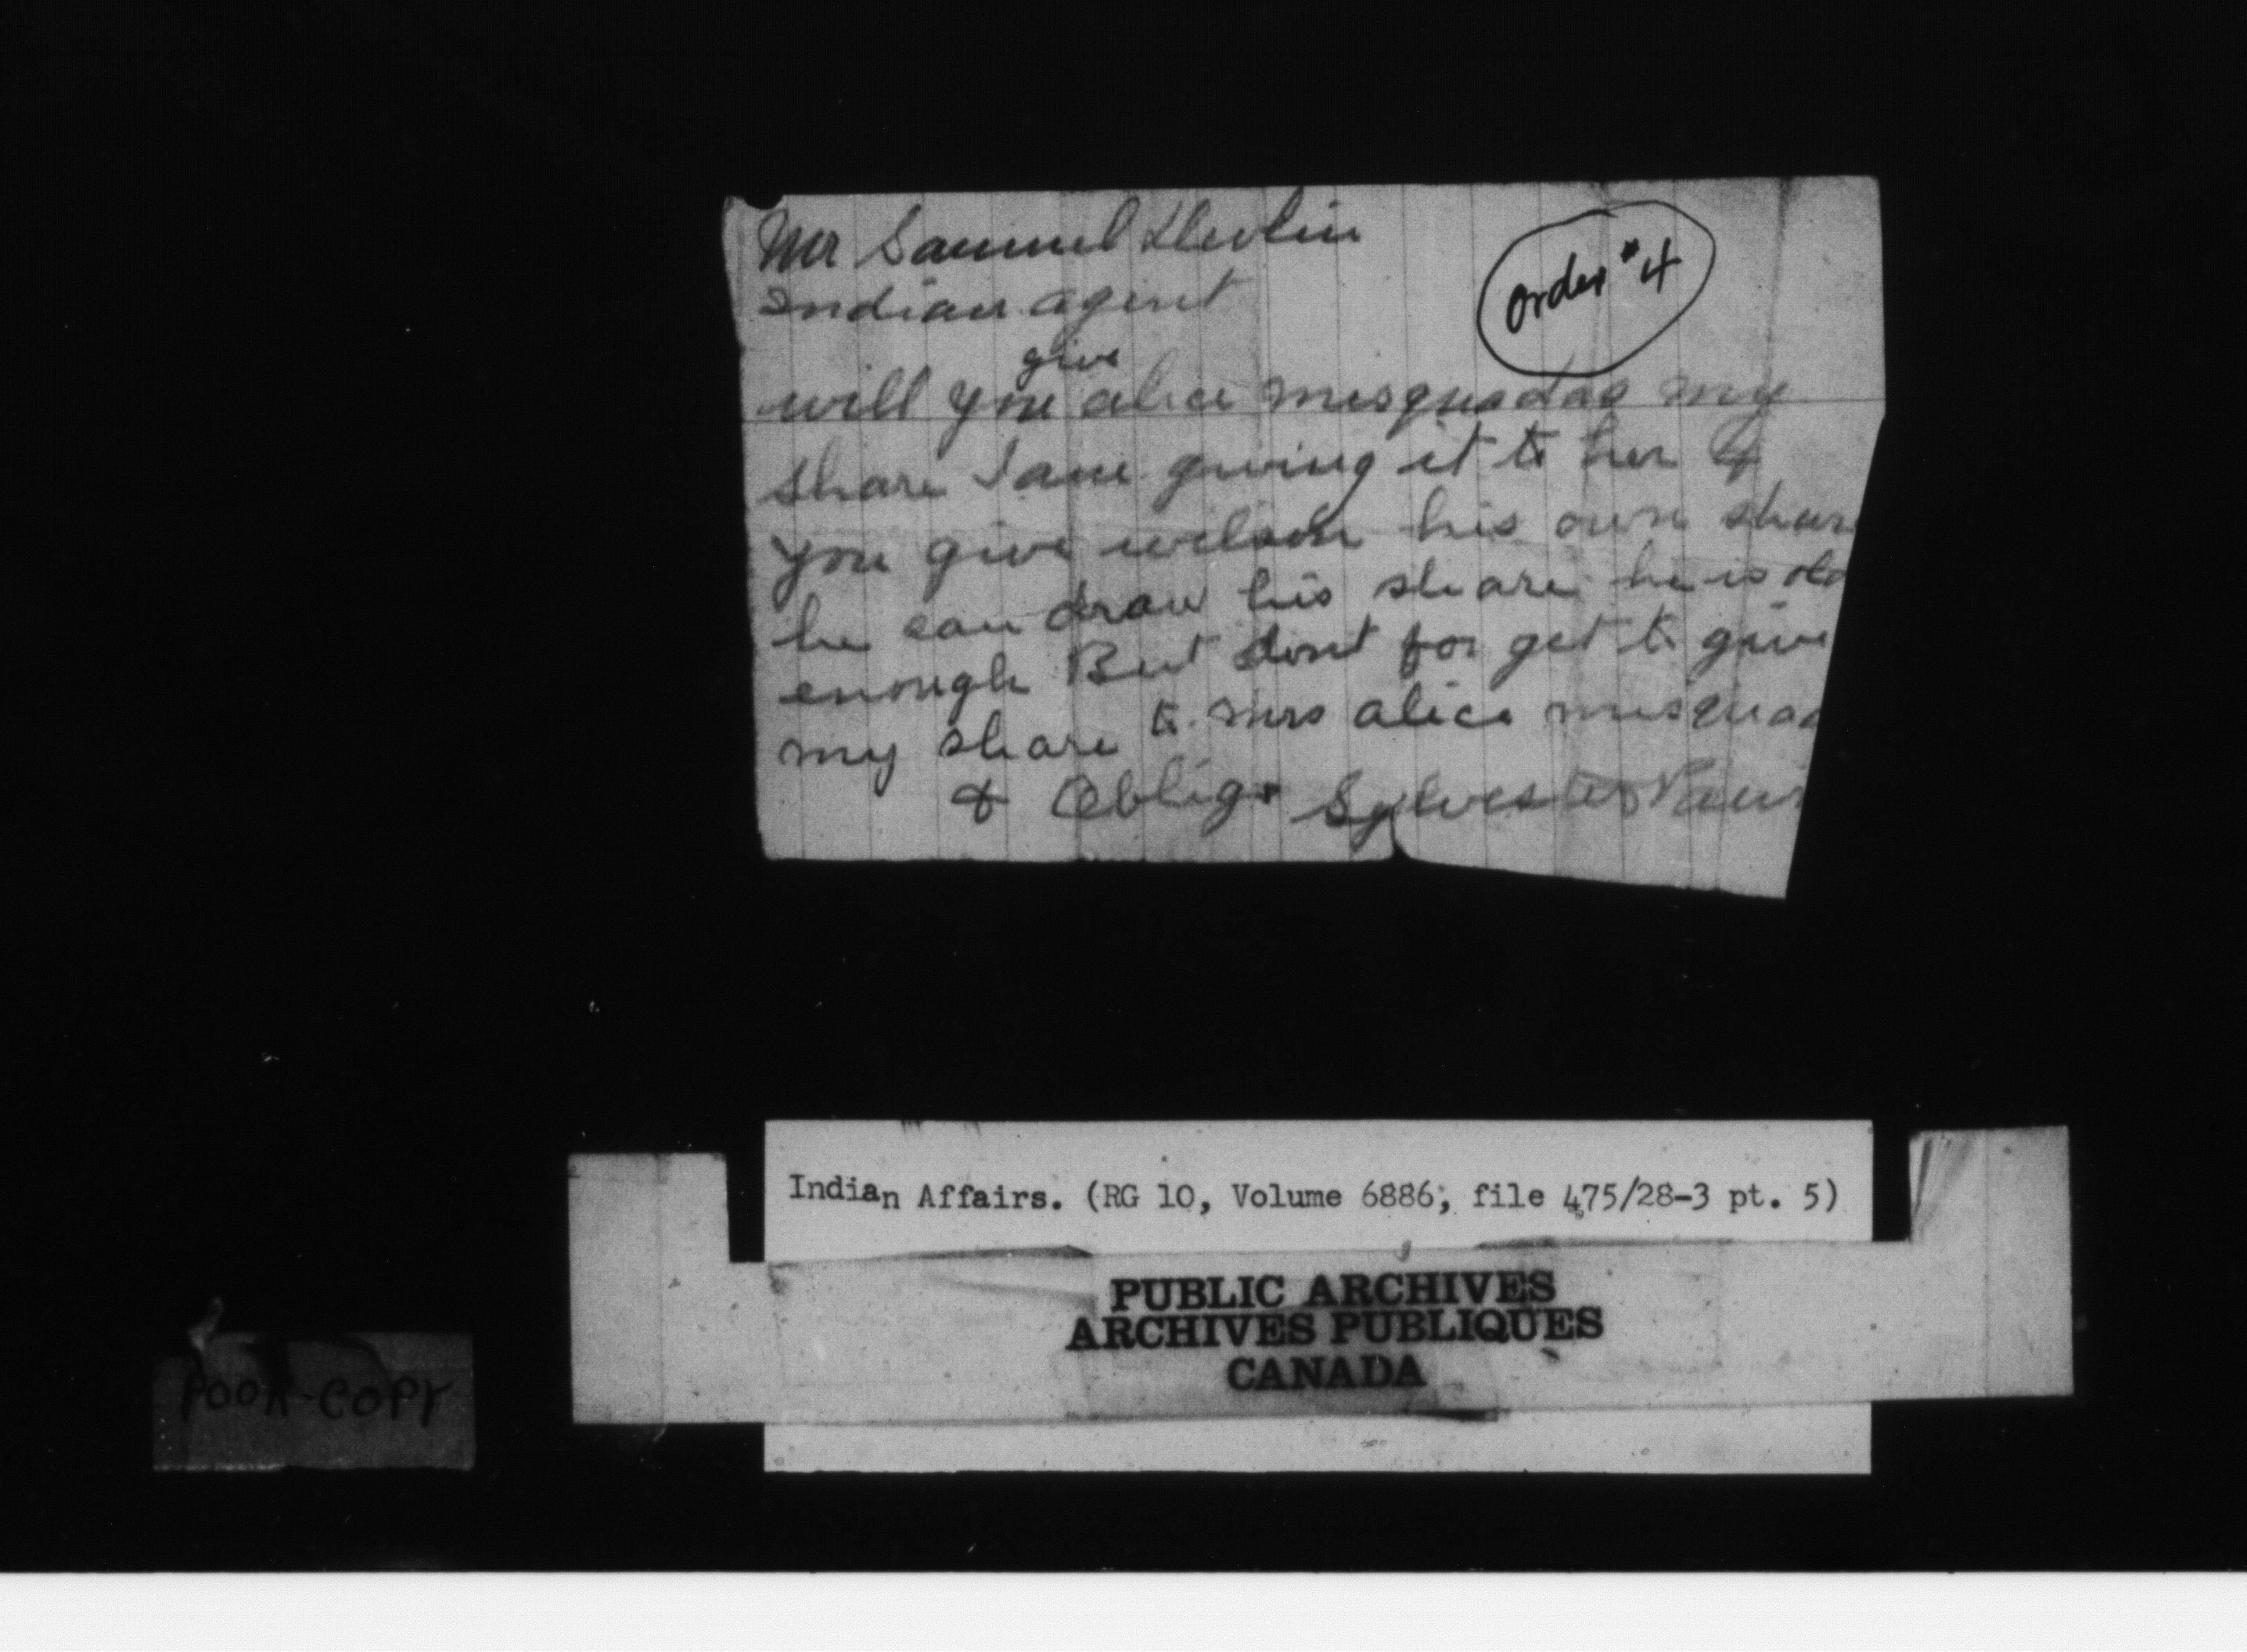 Mr Samuel Devlin
Indian agent
Order #4
give
will you alice misquadas my
share I am giving it to her &
you give wilson his own shar
he can draw his share he is old
enough But dont for get to give
my share to mrs alice misquad
& Oblige Sylvester
Indian Affairs. (RG 10, Volume 6886, file 475/28-3 pt. 5)
PUBLIC ARCHIVES
ARCHIVES PUBLIQUES
CANADA
POOR-COPY